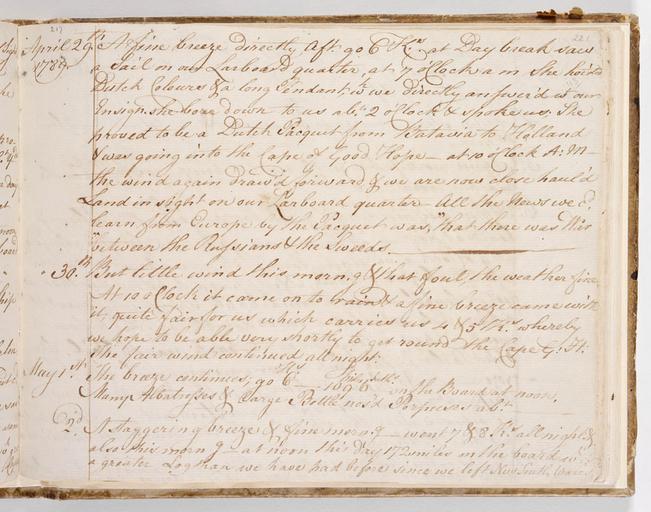 217
221
April 29th A fine breeze directly Aft go 6 Kts at Day break saw
1789. a Sail on our Larboard quarter, at 7 o'Clock a m She hois'd
Dutch Colours & a long Pendant wch we directly answer'd wt our
Ensign. she bore down to us abt 2 o'Clock & spoke us. She
proved to be a Dutch Pacquet from Batavia to Holland
& was going into the Cape of Good Hope — at 10 o'Clock A: M —
the wind again Draw'd forward & we are now close haul'd
Land in sight on our Larboard quarter — All the News we cd
learn from Europe by the Pacquet was, "that there was War
"between the Russians & the Sweeds.
" 30th But little wind this morng & that foul, the weather fine
At 10 o Clock it came on to rain & a fine breeze came with
it, quite fair for us which carries us 4 & 5 Kts whereby
we hope to be able very shortly to get round the Cape G. H.
the fair wind continued all night.
May 1st The breeze continues, go 6 Kts — in the Board at noon,
Albatrosses & Large Bottle nos'd Porposses abt
" 2d. A Staggering breeze & fine morng — went 7 & 8 Kts all night &
also this morng — at noon this day 172 miles in the board wch
a greater Log than we have had before since we left New South Wales